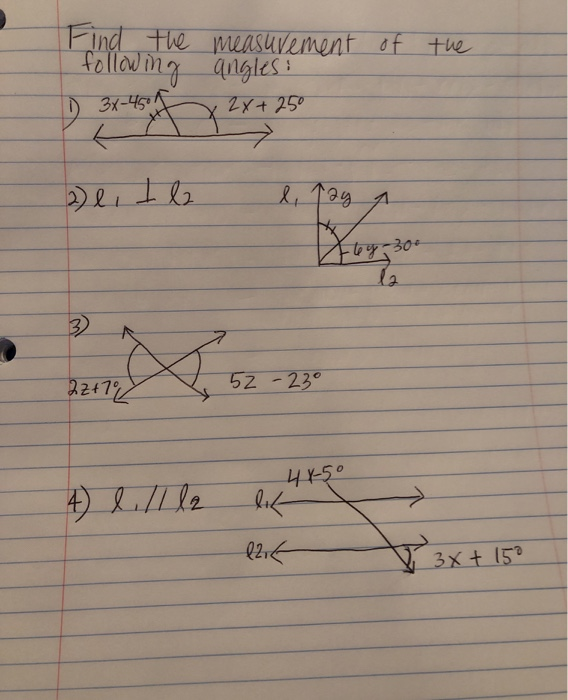 Find the measurement of the
following angles:
1) 3x-45° 2x + 25°
2) l1 ⊥ l2 l1 2y
6y-30°
l2
3)
2z+7° 5z -23°
4x-5°
4) l1 // l2 l1
l2 3x + 15°